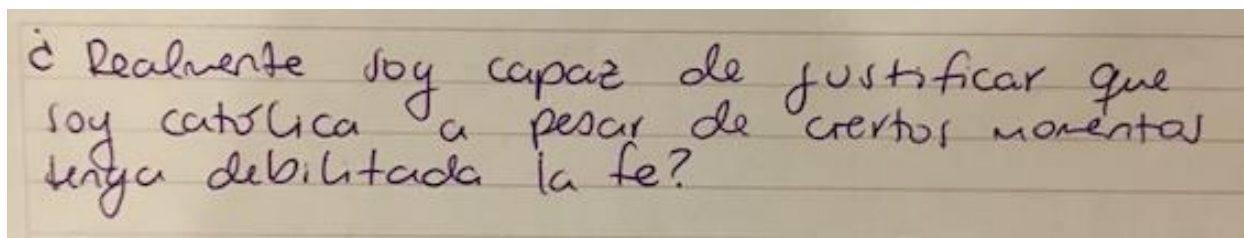 ¿Realmente soy capaz de justificar que
soy católica a pesar de ciertos momentos
tenga debilitada la fe?